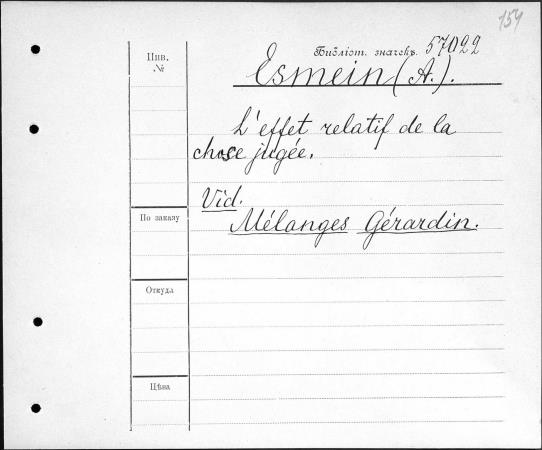 154
Библіот. значекъ. 57022
Инв.
№
Esmein (A.).
L'effet relatif de la
chose jugée.
Vid.
По заказу
Mélanges Gérardin.
Откуда
Цѣна